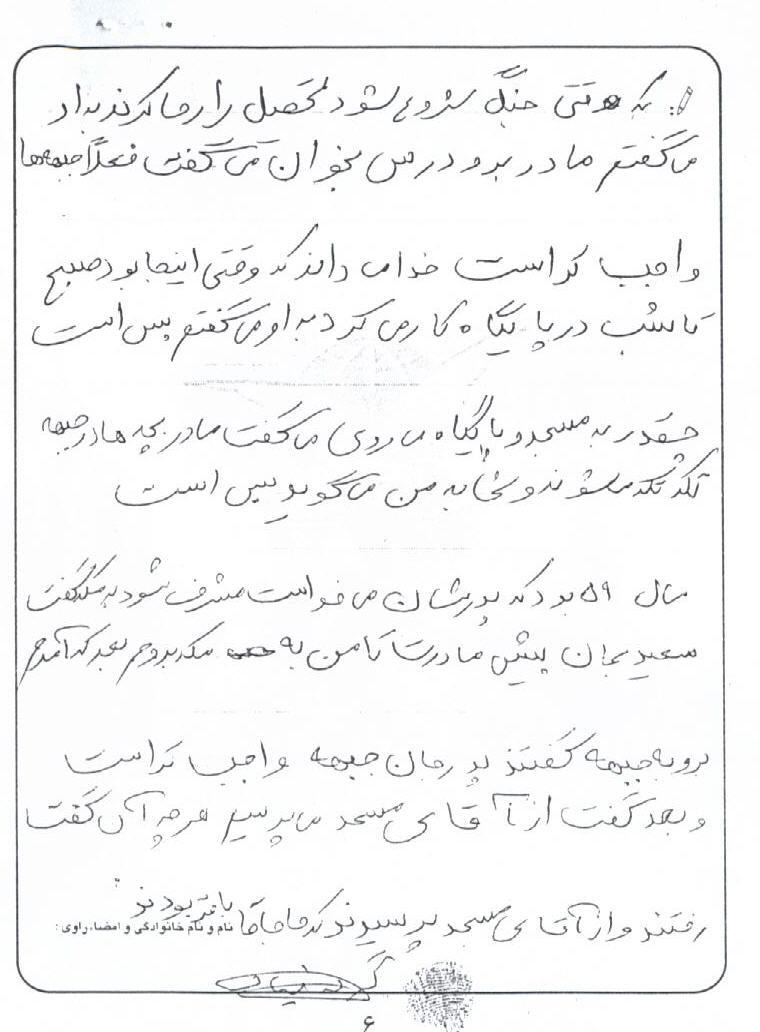 که وقتی جنگ شروع شود تحصیل را رها کردند به او
می گفتم مادر برو درس بخوان می گفت فعلاً جبهه ها
واجب تر است خدا می داند که وقتی اینجا بود صبح
تا شب در پایگاه کار می کرد به او می گفتم بس است
چقدر به مسجد و پایگاه می روی می گفت مادر بچه ها در جبهه
تکه تکه می شوند و شما به من می گویید بس است
سال ۵۹ بود که پدرشان می خواست مشرف شود به مکه گفت
سعید بمان پیش مادرت تا من به مکه بروم بعد که آمدم
برو به جبهه گفتند پدر جان جبهه واجب تر است
و بعد گفت از آقای مسجد می پرسیم هر چه آن گفت
رفتند و از آقای مسجد پرسیدند که حاج آقا باقر بودند
نام و نام خانوادگی و امضاء راوی:
۶